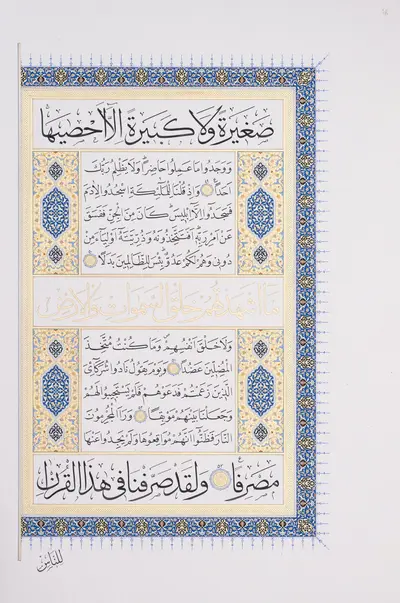 صَغِيرَةً وَلَا كَبِيرَةً اِلَّا اَحْصٰيهَا
وَوَجَدُوا مَا عَمِلُوا حَاضِرًا وَلَا يَظْلِمُ رَبُّكَ
اَحَدًا وَاِذْ قُلْنَا لِلْمَلٰٓئِكَةِ اسْجُدُوا لِاٰدَمَ
فَسَجَدُوا اِلَّا اِبْلِيسَ كَانَ مِنَ الْجِنِّ فَفَسَقَ
عَنْ اَمْرِ رَبِّهِ اَفَتَتَّخِذُونَهُ وَذُرِّيَّتَهُ اَوْلِيَاءَ مِنْ
دُونِي وَهُمْ لَكُمْ عَدُوٌّ بِئْسَ لِلظَّالِمِينَ بَدَلًا
مَا اَشْهَدْتُهُمْ خَلْقَ السَّمٰوَاتِ وَالْاَرْضِ
وَلَا خَلْقَ اَنْفُسِهِمْ وَمَا كُنْتُ مُتَّخِذَ
الْمُضِلِّينَ عَضُدًا وَيَوْمَ يَقُولُ نَادُوا شُرَكَائِيَ
الَّذِينَ زَعَمْتُمْ فَدَعَوْهُمْ فَلَمْ يَسْتَجِيبُوا لَهُمْ
وَجَعَلْنَا بَيْنَهُمْ مَوْبِقًا وَرَاَ الْمُجْرِمُونَ
النَّارَ فَظَنُّوا اَنَّهُمْ مُوَاقِعُوهَا وَلَمْ يَجِدُوا عَنْهَا
مَصْرِفًا وَلَقَدْ صَرَّفْنَا فِي هٰذَا الْقُرْاٰنِ
لِلنَّاسِ